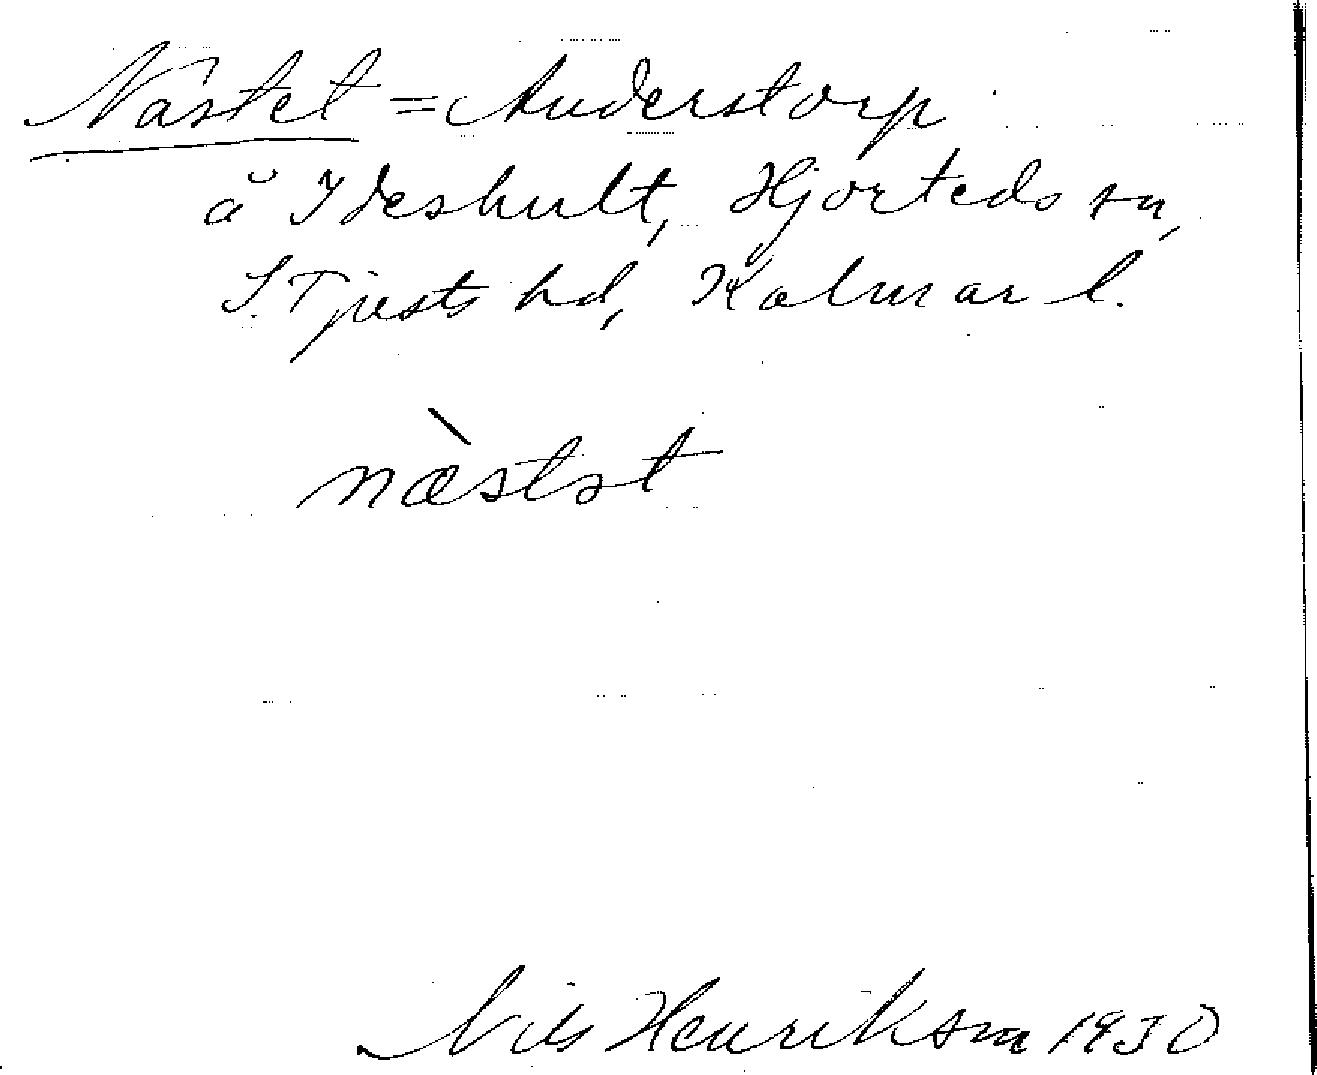 Nästet = Anderstorp
å Ideshult, Hjorteds sn,
S. Tjusts hd, Kalmar l.
næ̀stət
Nils Henrikson 1930